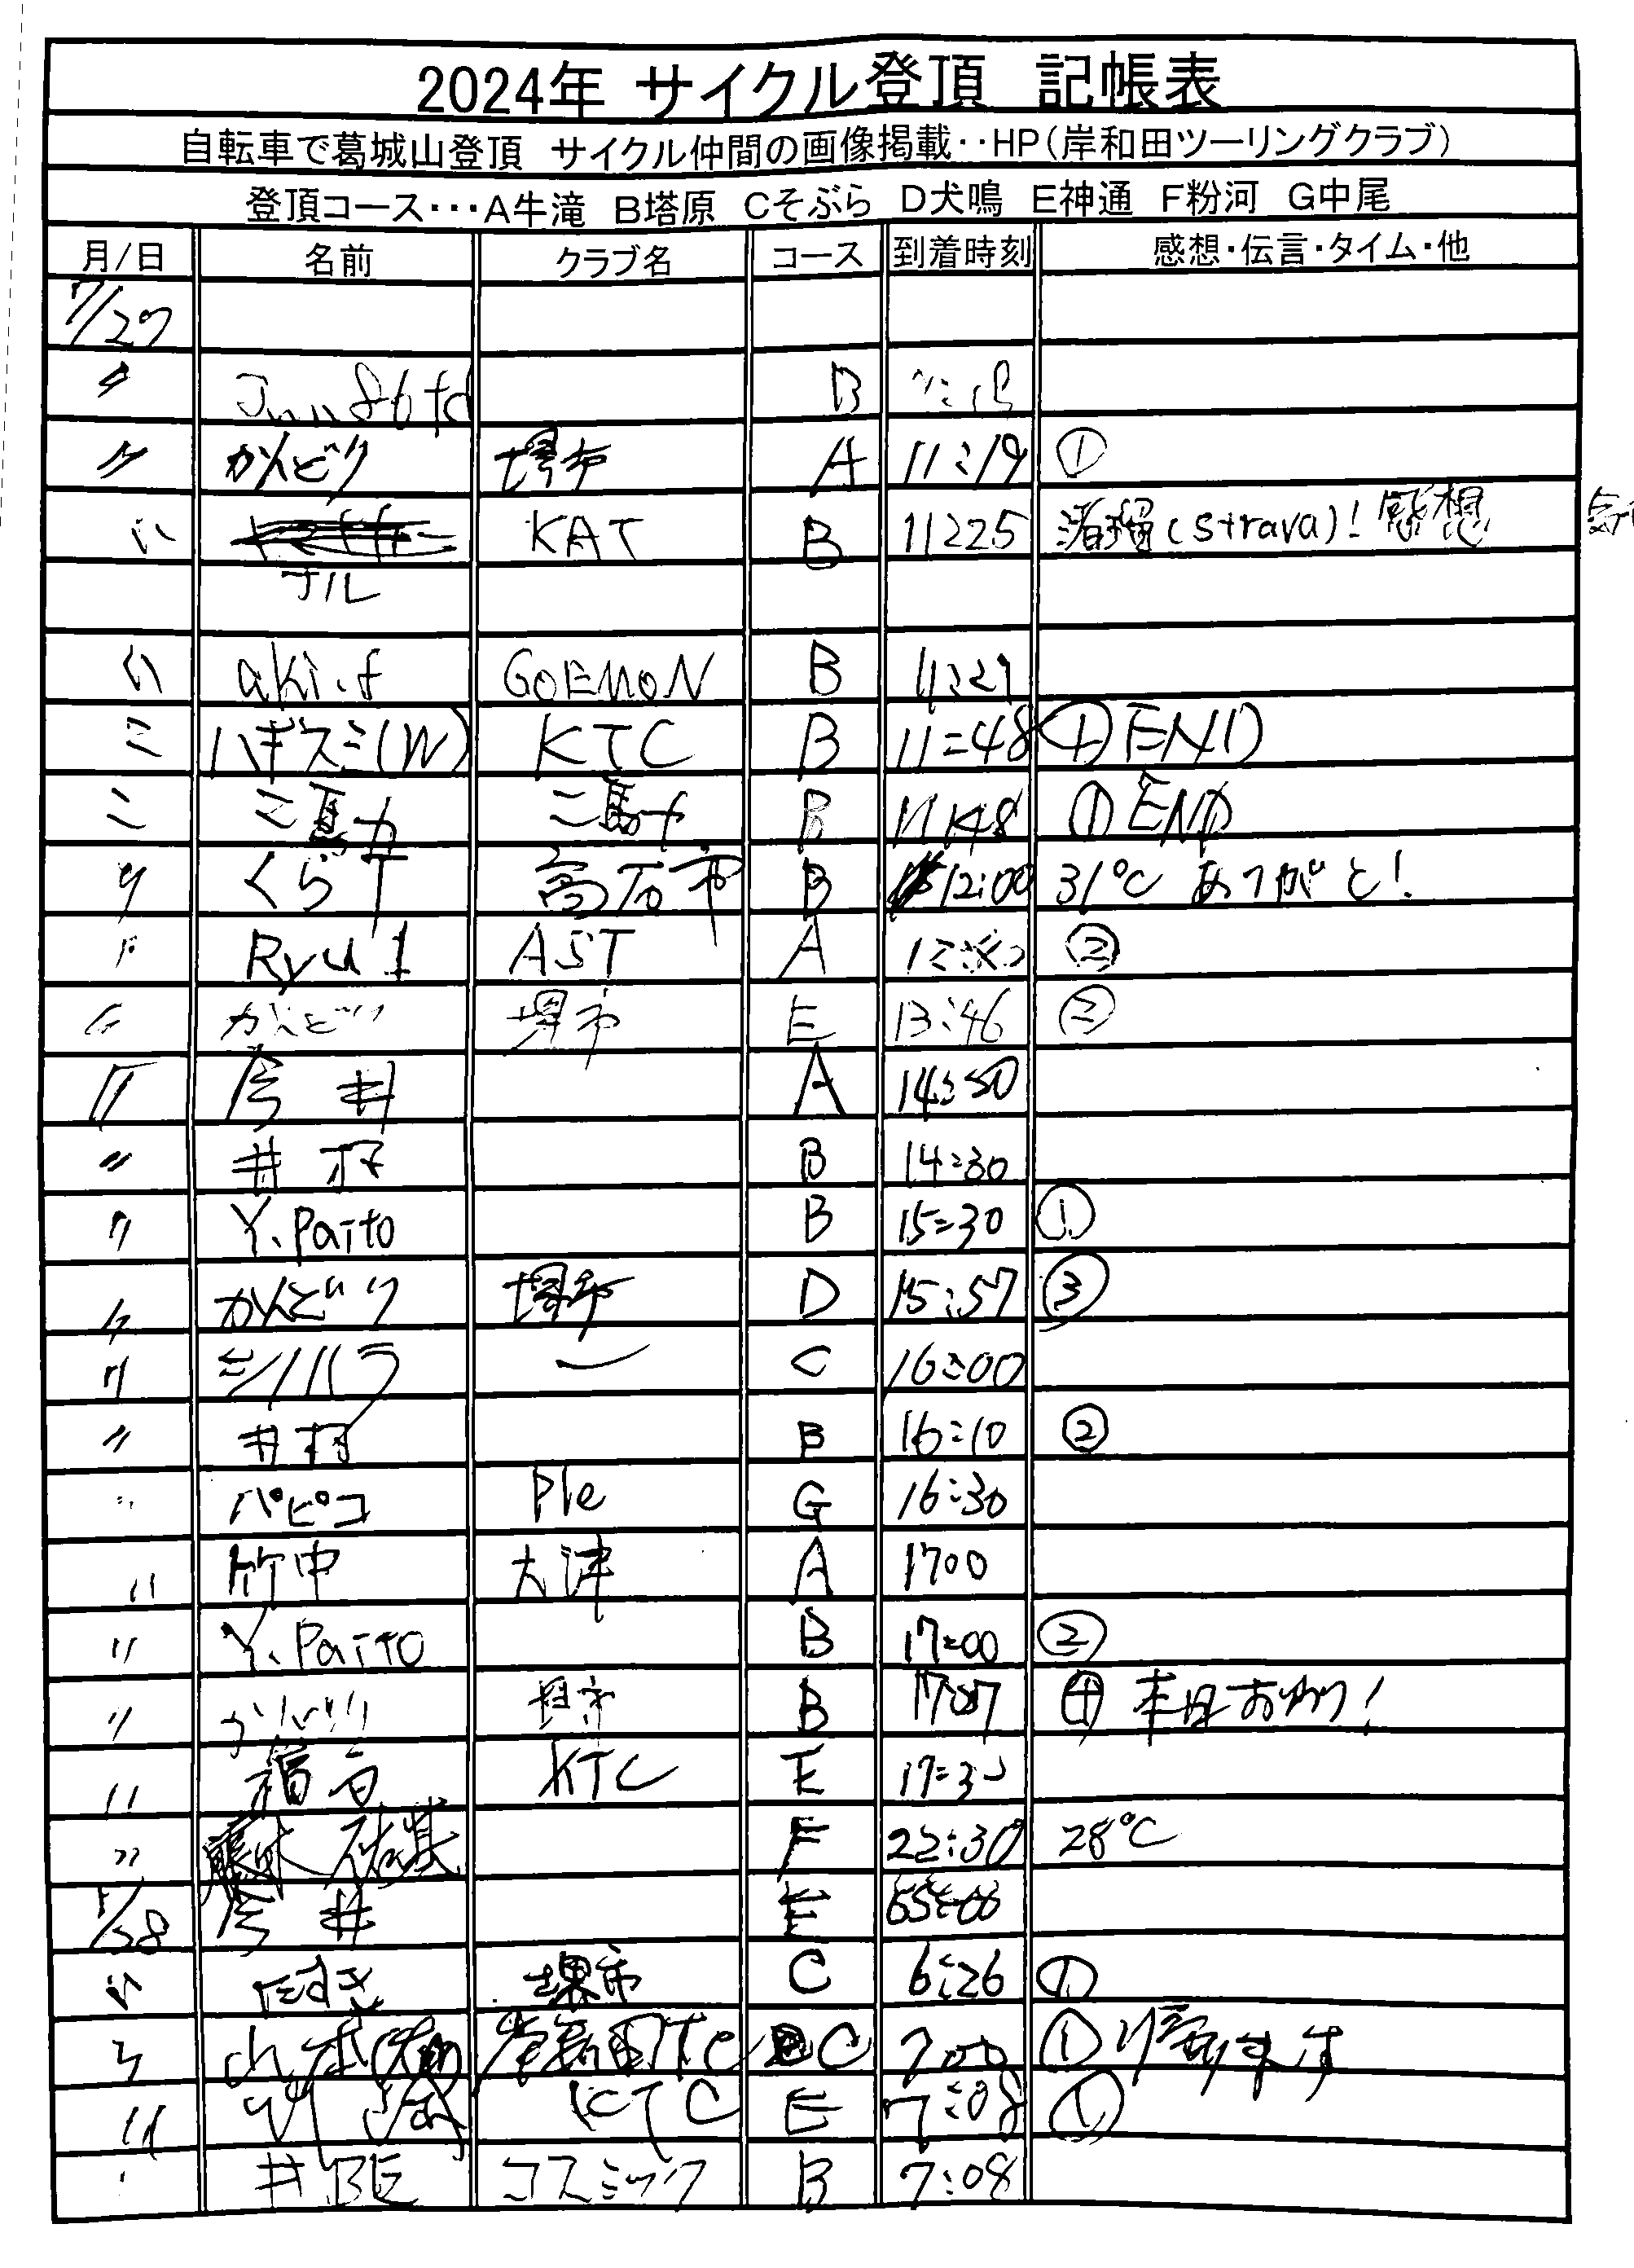 2024年 サイクル登頂 記帳表
自転車で葛城山登頂 サイクル仲間の画像掲載‥HP(岸和田ツーリングクラブ)
登頂コース･･･A牛滝 B塔原 Cそぶら D犬鳴 E神通 F粉河 G中尾
月/日 名前 クラブ名 コース 到着時刻 感想･伝言･タイム･他
7/27
〃 B
〃 かんどり 堺市 A 11:19 ①
〃 KAT B 11:25 (strava)! 感想
ナル
〃 aki.f GOEMON B 11:29
〃 ハギスミ(W) KTC B 11=48 ① END
〃 二馬力 二馬力 B 11:48 ① END
〃 くらT 高石市 B 12:00 31℃ ありがと!
〃 Ryu1 AST A ②
〃 かんどり 堺市 E 13:46 ②
〃 今井 A 14:30
〃 井村 B 14:30
〃 Y.Paito B 15=30 ①
〃 かんどり 堺市 D 15:57 ③
〃 シノハラ ー C 16:00
〃 井村 B 16:10 ②
〃 パピコ Ple G 16:30
〃 竹中 大津 A 1700
〃 Y.Paito B 17:00 ②
〃 かんどり 堺市 B 17:07 ④ 本日おわり!
〃 稲吉 KTC E 17=30
〃 F 22:30 28℃
7/28 今井 E
〃 たけき 堺市 C 6:26 ①
〃 山本 岸和田TC C 7:00 ①
〃 KTC E 7:08 ①
井BE コスミック B 7:08